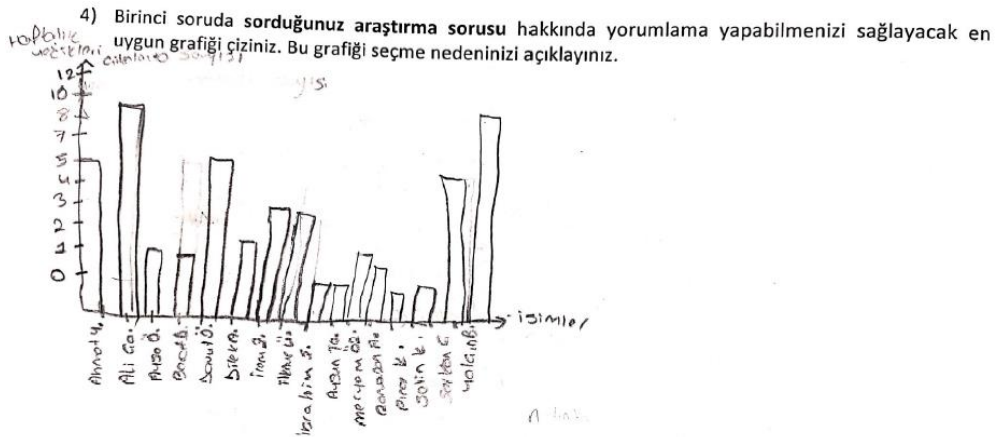 4) Birinci soruda sorduğunuz araştırma sorusu hakkında yorumlama yapabilmenizi sağlayacak en
uygun grafiği çiziniz. Bu grafiği seçme nedeninizi açıklayınız.
Haftalık
sayısı
12
10
8
7
5
4
3
2
1
0
isimler
Ahmet Y.
Ali Ga.
Ayşe Ö.
Davut D.
Dilek A.
İrem S.
İbrahim S.
Aysun Ta.
Meryem Öz.
Ramazan A.
Pınar K.
Selin K.
Yalçın B.